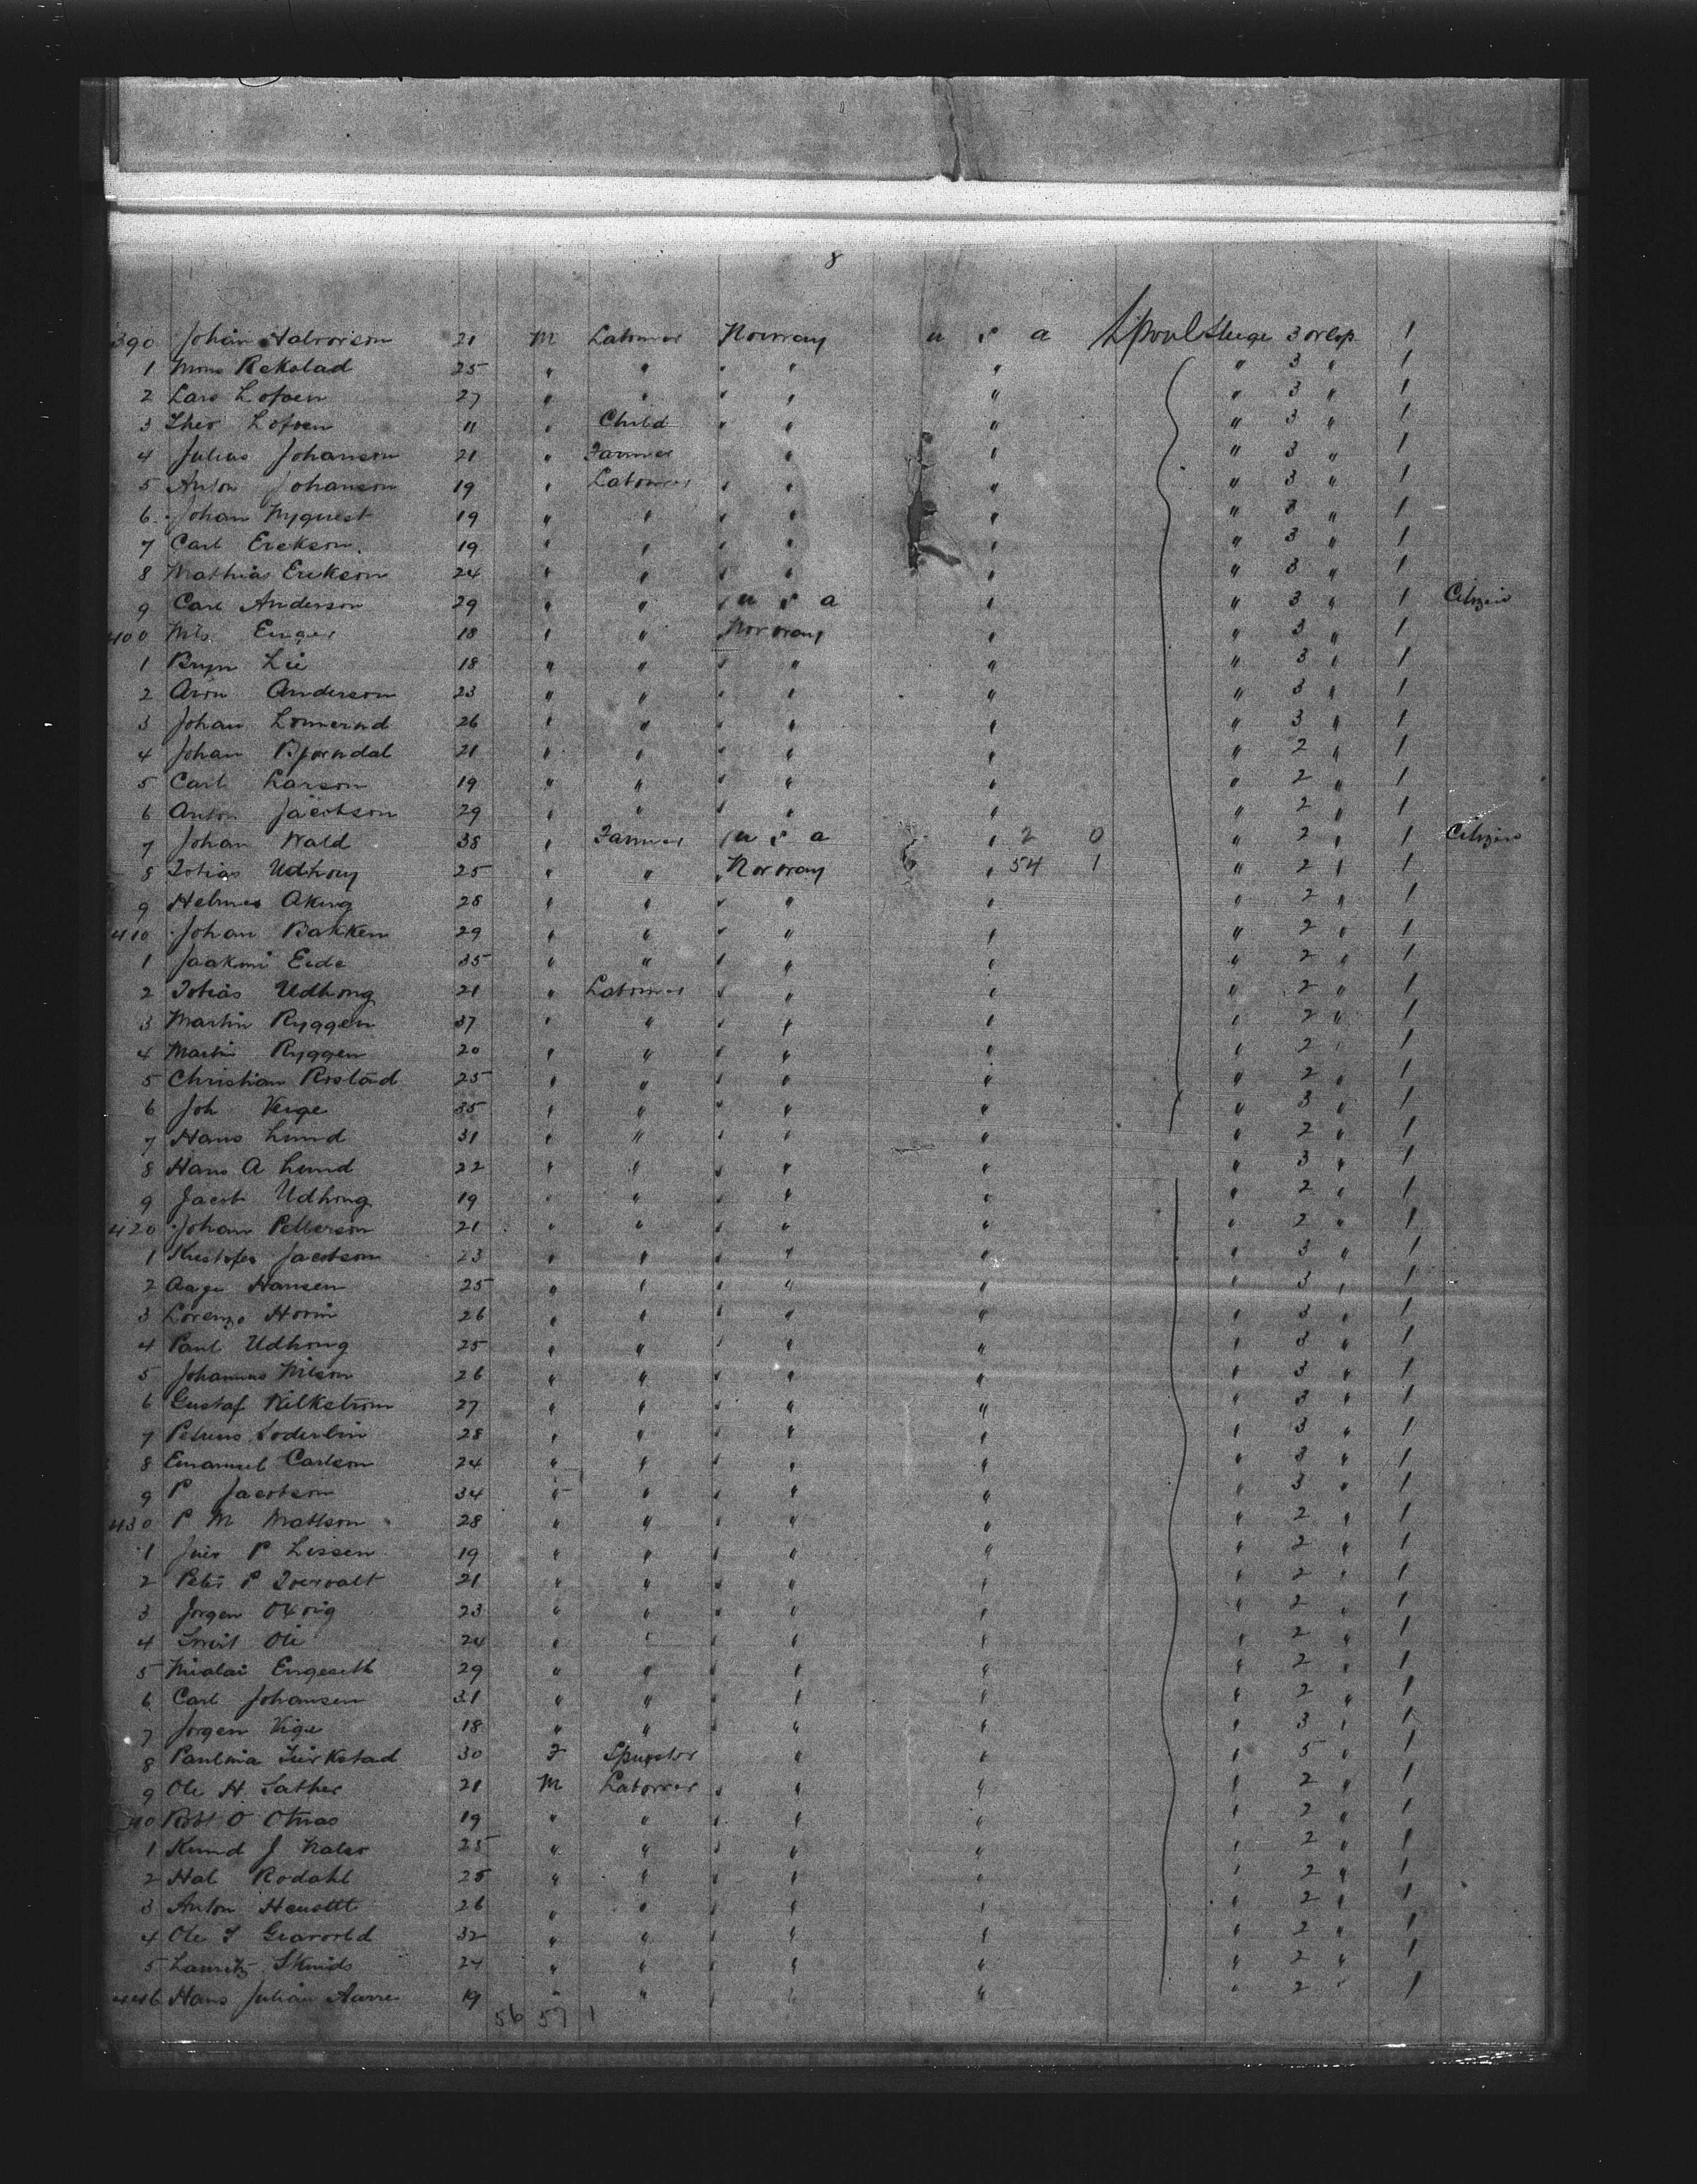 8
390 Johan Halvorsen 21 M Labourer Norway U S A L'pool Steerge 3 orlop 1
1 Mons Rekstad 25 " " " " " " 3 " 1
2 Lars Lofven 27 " " " " " " 3 " 1
3 Theo Lofven 11 " Child " " " " 3 " 1
4 Julius Johanson 21 " Farmer " " " 3 " 1
5 Anton Johanson 19 " Labourer " " " " 3 " 1
6 Johan Nyquest 19 " " " " " " 3 " 1
7 Carl Erekson 19 " " " " " " 3 " 1
8 Mathias Erikson 24 " " " " " " 3 " 1
9 Carl Anderson 29 " " U S A " " 3 " 1 Citizen
400 Nls. Enger 18 " " Norway " " 3 " 1
1 Bryn Lie 18 " " " " " " 3 " 1
2 Aron Anderson 23 " " " " " " 3 " 1
3 Johan 26 " " " " " " 3 " 1
4 Johan Bjorndal 21 " " " " " " 2 " 1
5 Carl Larson 19 " " " " " " 2 " 1
6 Anton Jacobson 29 " " " " " " 2 " 1
7 Johan Wald 38 " Farmer U S A " 2 0 " 2 " 1 Citizen
8 Tobias Udhong 25 " " Norway " 54 1 " 2 " 1
9 Helmer Aking 28 " " " " " " 2 " 1
410 Johan Bakken 29 " " " " " " 2 " 1
1 Joakmi Eide 35 " " " " " " 2 " 1
2 Tobias Udhong 21 " Labourer " " " " 2 " 1
3 Martin Ryggen 37 " " " " " " 2 " 1
4 Martin Ryggen 20 " " " " " " 2 " 1
5 Christian Rostad 25 " " " " " " 2 " 1
6 Joh Verge 35 " " " " " " 3 " 1
7 Hans Lund 31 " " " " " " 2 " 1
8 Hans A Lund 22 " " " " " " 3 " 1
9 Jacob Udhong 19 " " " " " " 2 " 1
420 Johan Petterson 21 " " " " " " 2 " 1
1 Kristofer Jacobson 23 " " " " " " 3 " 1
2 Aage Hansen 25 " " " " " " 3 " 1
3 Lorenzo Horin 26 " " " " " " 3 " 1
4 Paul Udhong 25 " " " " " " 3 " 1
5 Johannes Nilson 26 " " " " " " 3 " 1
6 Gustaf Wilkstrom 27 " " " " " " 3 " 1
7 Petrus Soderlin 28 " " " " " " 3 " 1
8 Emanuel Carlson 24 " " " " " " 3 " 1
9 P Jacobson 34 " " " " " " 3 " 1
430 P M Mattson 28 " " " " " " 2 " 1
1 Jens P Lissen 19 " " " " " " 2 " 1
2 Peter P 21 " " " " " " 2 " 1
3 Jorgen 23 " " " " " " 2 " 1
4 Ole 24 " " " " " " 2 " 1
5 Nicolai Engeseth 29 " " " " " " 2 " 1
6 Carl Johansen 31 " " " " " " 2 " 1
7 Jorgen Vige 18 " " " " " " 3 " 1
8 Paulina 30 F Spinster " " " 5 " 1
9 Ole H. Sather 21 M Labourer " " " " 2 " 1
440 Robt O Otnas 19 " " " " " " 2 " 1
1 Knud J 25 " " " " " " 2 " 1
2 Hal Rodahl 25 " " " " " " 2 " 1
3 Anton 26 " " " " " " 2 " 1
4 Ole 32 " " " " " " 2 " 1
5 Lauritz 24 " " " " " " 2 " 1
446 Hans Julian 19 " " " " " " 2 " 1
56 57 1